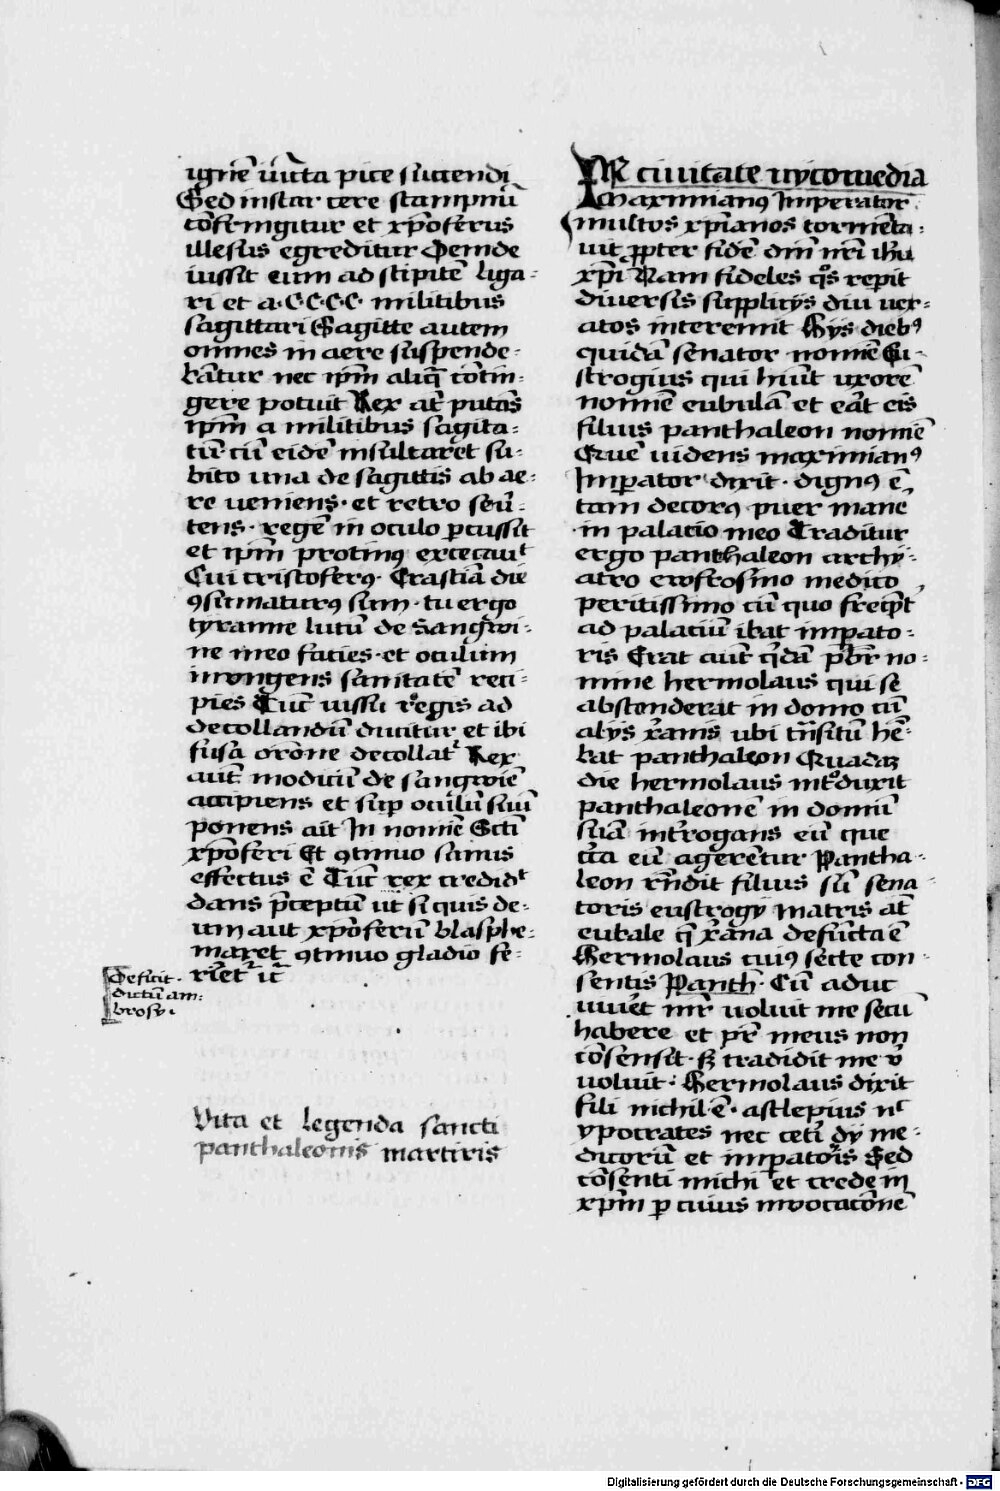 ignem iuncta pice succendi
Sed instar cere stampnum
cōfringitur et xp̄oferus
illesus egreditur Deinde
iussit eum ad stipitē liga-
ri et a .C.C.C.C. militibus
sagittari Sagitte autem
omnes in aere suspende-
bātur nec ip̄m aliq̄ cōtin-
gere potuit Rex at̄ putās
ip̄m a militibus sagita-
tū cū eidē insultaret su-
bito una de sagittis ab ae-
re veniens · et retro
tens · regē in oculo p̄cussit
et ip̄m protinꝰ excecauit
Cui cristoferꝰ · Crastīa die
ꝯsūmaturꝰ sum · tu ergo
tyranne lutū de sangwi-
ne meo facies · et oculum
inungens sanitatē reci-
pies Tūc iussu regis ad
decollandū ducitur et ibi
fusa orōne decollatᷣ Rex
aut̄ modicū de sangwīe
accipiens et sup̄ oculū suū
ponens ait In nomīe Sctī
xp̄oferi Et ꝯtinuo sanus
effectus ē Tūc rex credidit
dans p̄ceptū ut si quis de-
um aut xp̄oferū blasphe-
maret ꝯtinuo gladio fe-
riretᷣ ic̄
Deficit ·
dictū am-
brosy ·
Vita et legenda sancti
panthaleonis martiris
In ciuitate nycomedia
Maximianꝰ Imperator
multos xp̄ianos tormēta-
uit p̄pter fidē dn̄i nr̄i ihū
xp̄i Nam fideles qͦs rep̄it
diuersis supplicijs diu uex-
atos interemit Hijs diebꝰ
quidā senator nomīe Eu-
strogius qui hūit uxorē
nomīe eubulā et eāt eis
filius panthaleon nomīe
Quē uidens maximianꝰ
Imp̄ator dixit · dignꝰ ē
tam decorꝰ puer mane
in palacio meo Traditur
ergo panthaleon archy-
atro erofrosīno medico
peritissimo cū quo freqn̄t
ad palaciū ibat imp̄ato-
ris Erat aut̄ qͥdā p̄br̄ no-
mine hermolaus qui se
absconderat in domo cū
alijs xͬanis ubi tn̄situ hē-
bat panthaleon Quadaꝫ
die hermolaus intͦduxit
panthaleonē in domū
suā int̄rogans eū que
ct̄a eū agerētur Pantha-
leon rn̄dit filius sū sena
toris eustrogij matris at̄
eubale q̄ xͬana defūcta ē
Hermolaus cuiꝰ secte con-
sentis Panth̄ · Cū aduc
uiu̇et mr̄ uoluit me secū
habere et pr̄ meus non
cōsensit · sꝫ tradidit me
uoluit · Hermolaus dixit
fili nichil ē · asclepius nͨ
ypocrates nec cetī dij me-
dicorū et imp̄atoris Sed
cōsenti michi et crede in
xp̄m p̄ cuius inuocacōnē
Digitalisierung gefördert durch die Deutsche Forschungsgemeinschaft - DFG